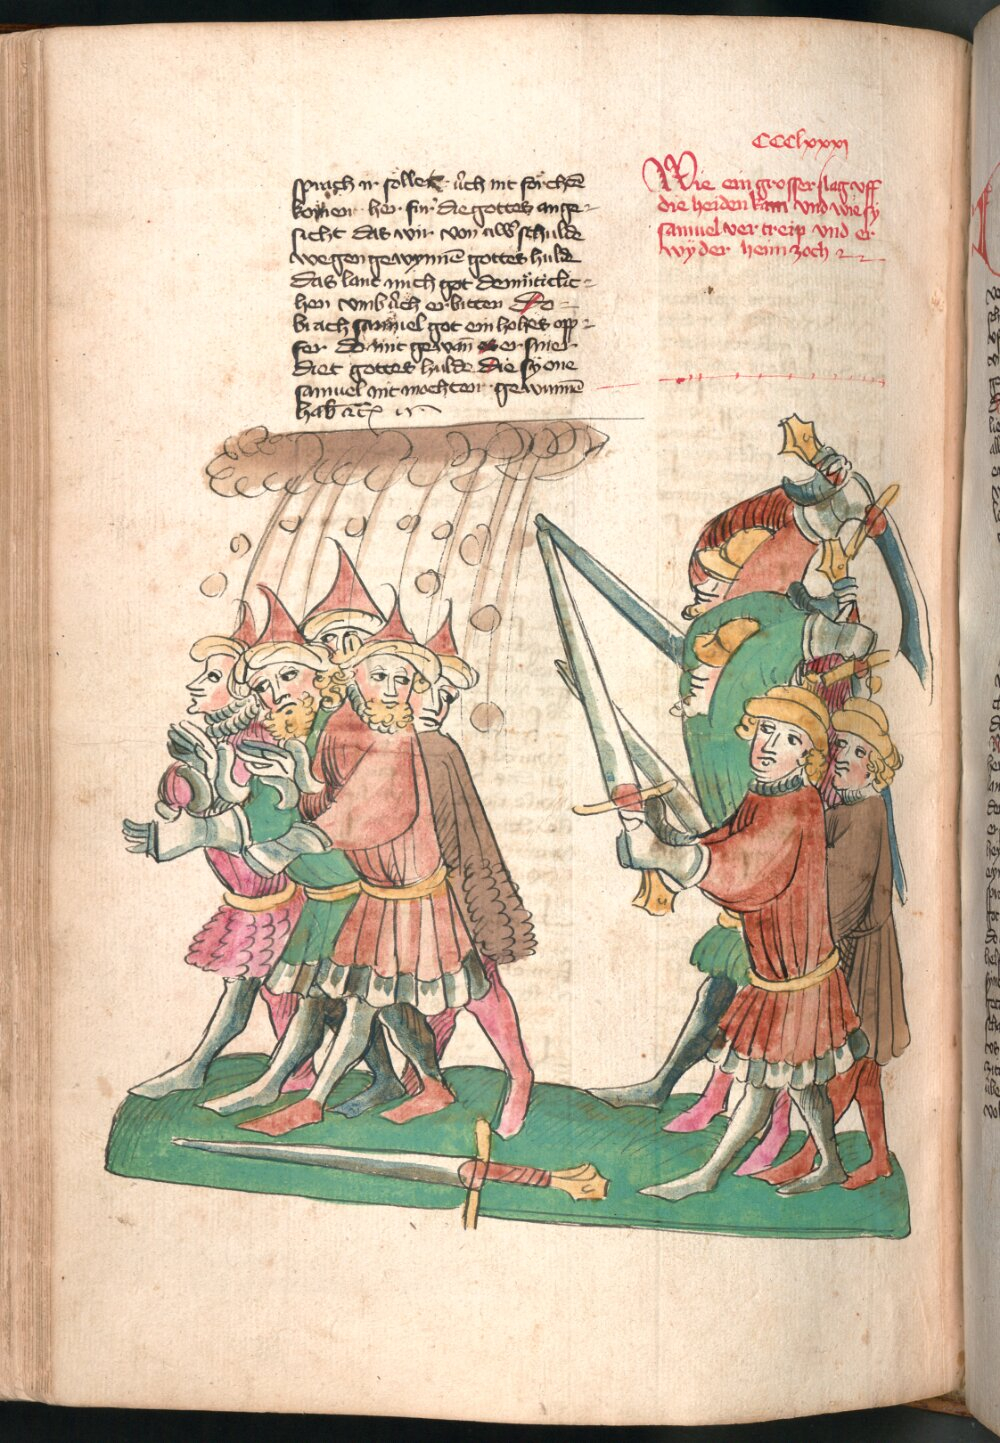 sprach ir sollet uch nit förchten
komen her fur die gottes ange-
sicht das wir von uwer schulde
wegen gewynnen gottes huld
das lant mich got demüticlic-
hen vmb uch erbitten Do
brach samuel got ein hohes opp-
fer do mit gewan er siner
diet gottes hulde die sy one
samuel nit mochten gewinnen
CCClxxxi
Wie ein grosser slag vff
die heiden kam vnd wie sy
samuel vertreip vnd er
wyder heim zoch